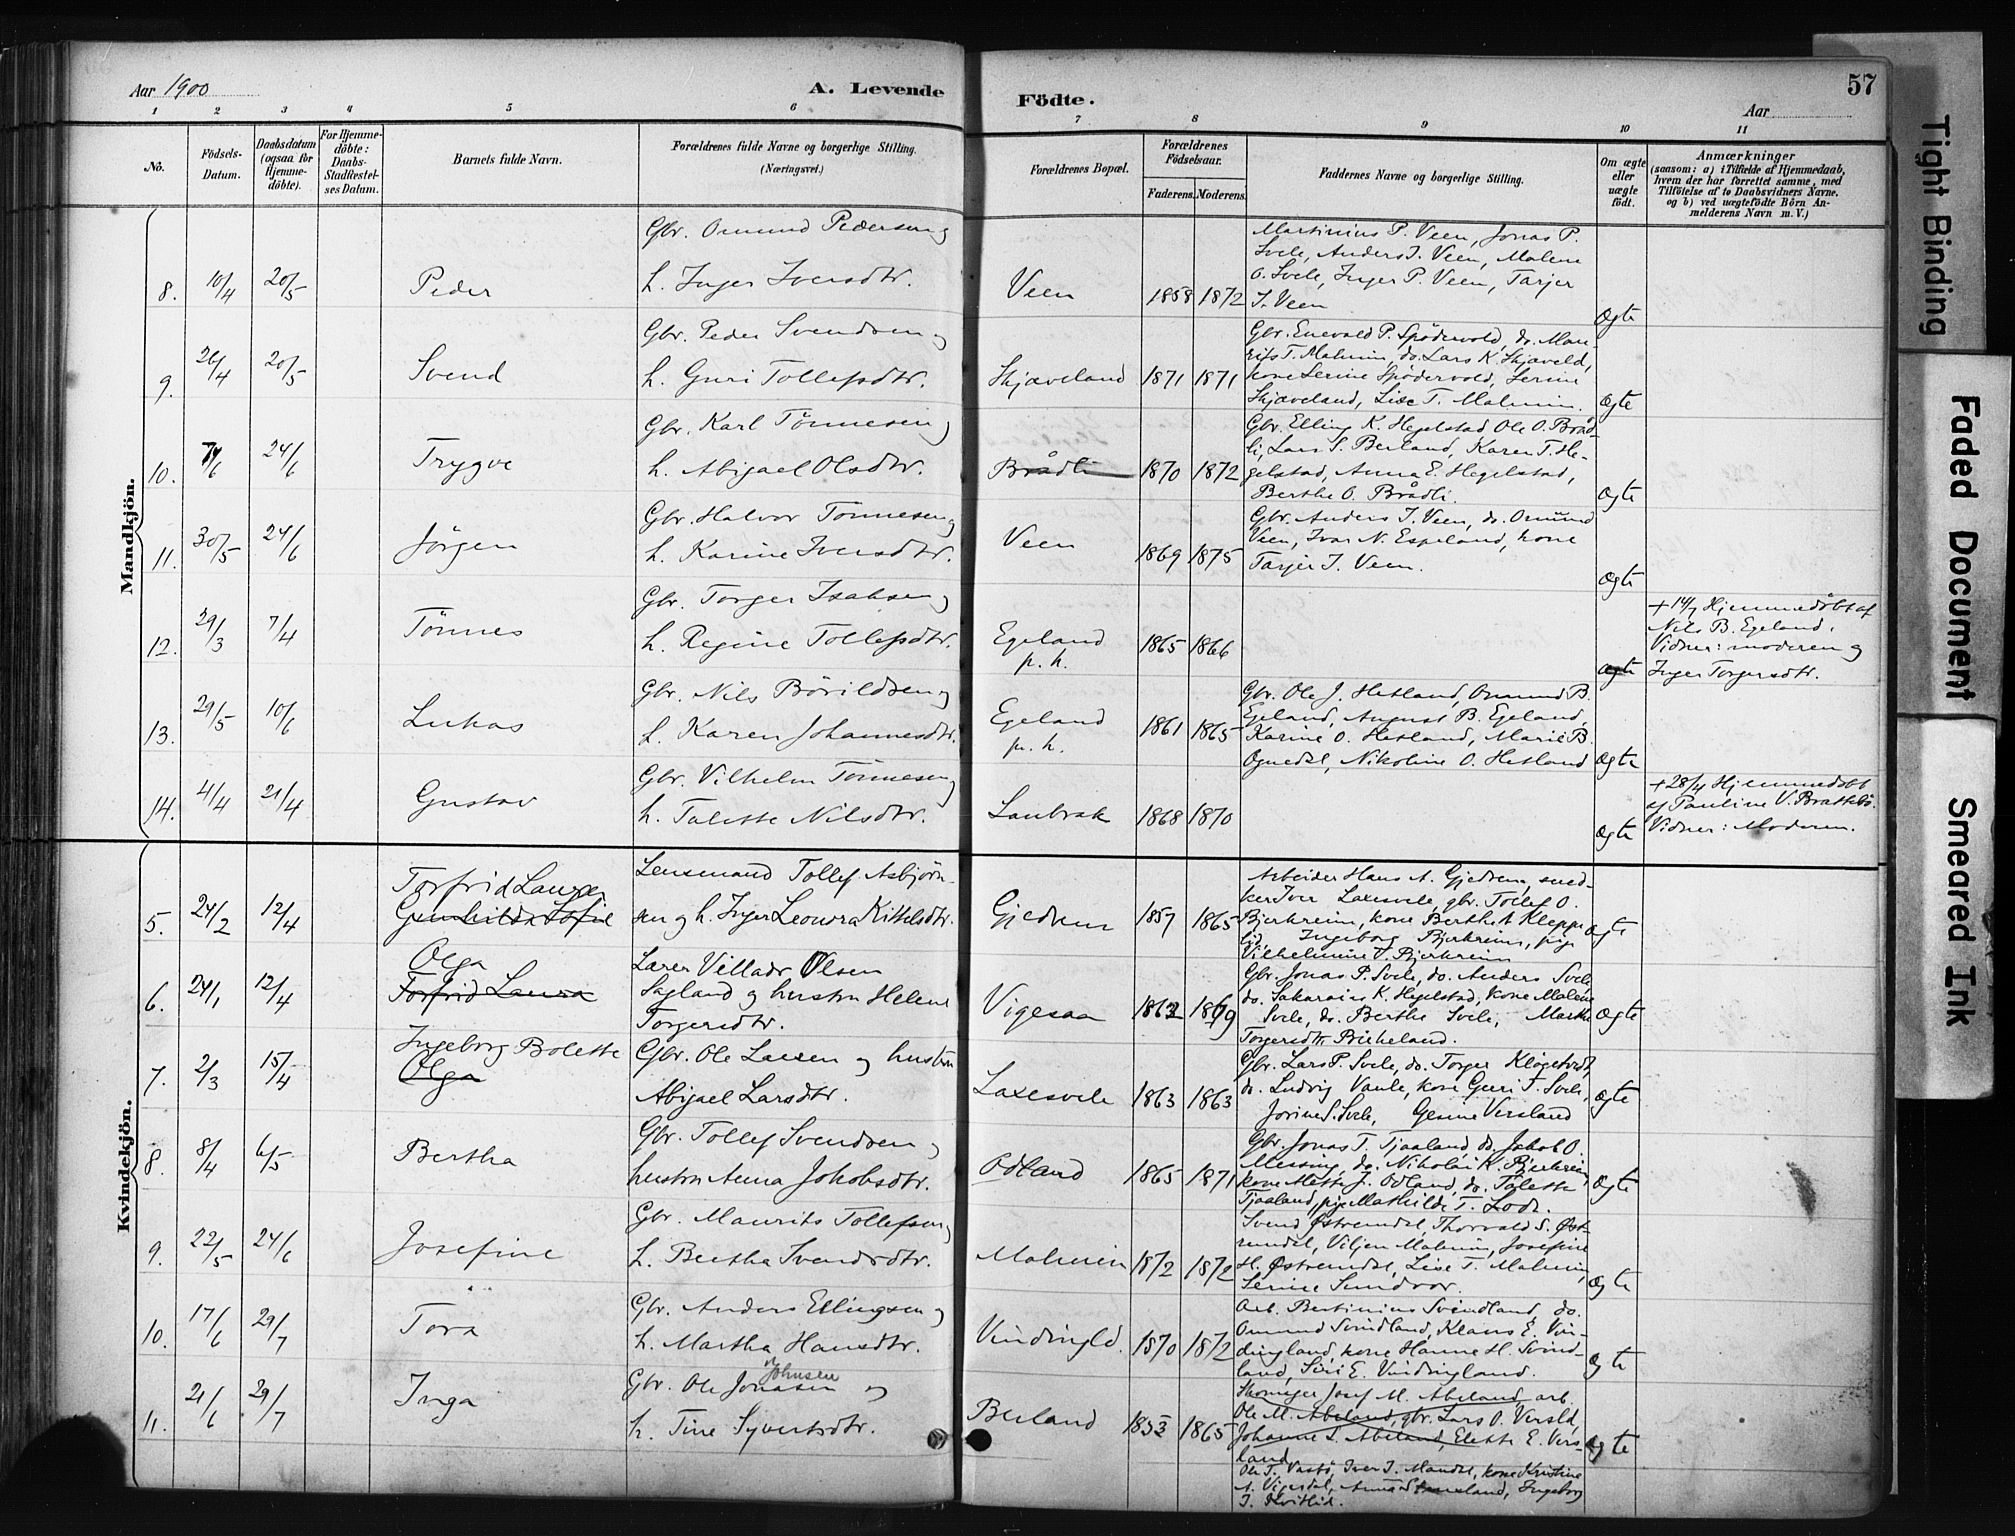 Aar 1900
A. Levende
Födte.
Aar
57
1 2 3 4 5 6 7 8 9 10 11
No.
Födsels-Datum.
Daabsdatum (ogsaa for Hjemmedöbte).
For Hjemmedöbte: Daabs-Stadfæstelses Datum.
Barnets fulde Navn.
Forældrenes fulde Navne og borgerlige Stilling.
(Næringsvei.)
Forældrenes Bopæl.
Forældrenes Födselsaar.
Faderens. Moderens.
Faddernes Navne og borgerlige Stilling.
Om ægte eller uægte födt.
Anmærkninger
(saasom: a) i Tilfælde af Hjemmedaab,
hvem der har forrettet samme, med
Tilföielse af to Daabsvidners Navne.
og b) ved uægtefödte Börn Anmelderens Navn m. V.)
Mandkjön.
8. 10/4 20/5 Peder
Gbr. Omund Pedersen og
h. Inger Iversdtr.
Veen 1858 1872
Martinius P. Veen, Jonas P.
Svele, Anders I. Veen, Malene
O. Svele, Inger P. Veen, Tarjer
I. Veen
Ægte
9. 26/4 20/5 Svend
Gbr. Peder Svendsen og
h. Guri Tollefsdtr.
Skjæveland 1871 1871
Gbr. Enevald P. Spødervold, do. Mau-
rits T. Malmin, do. Lars K. Skjæveld,
kone Serine Spødervold, Serine
Skjæveland, Lise T. Malmin.
Ægte
10. 7/6 24/6 Trygve
Gbr. Karl Tönnesen og
h. Abigael Olsdtr.
Brådli 1870 1872
Gbr. Elling K. Hegelstad Ole O. Bråd-
li, Lars S. Berland, Karen T. He-
gelstad, Anna E. Hegelstad,
Berthe O. Brådli.
Ægte
11. 30/5 24/6 Jörgen
Gbr. Halvor Tönnesen og
h. Karine Iversdtr.
Veen 1869 1875
Gbr. Anders I. Veen, do. Omund
Veen, Ivar N. Espeland, kone
Tarjer I. Veen.
Ægte
12. 29/3 7/4 Tönnes
Gbr. Torger Isaksen og
h. Regine Tollefsdtr.
Egeland
p. h. 1865 1866
Ægte
+ 14/7 Hjemmedöbt af
Nils B. Egeland.
Vidner: moderen og
Inger Torgersdtr.
13. 29/5 10/6 Lukas
Gbr. Nils Börildsen og
h. Karen Johannesdtr.
Egeland
p. h. 1861 1865
Gbr. Ole J. Hetland, Omund B.
Egeland, August B. Egeland,
Karine O. Hetland, Marie B.
Ognedal, Nikoline O. Hetland
Ægte
14. 4/4 21/4 Gustav
Gbr. Vilhelm Tönnesen og
h. Talette Nilsdtr.
Laubrak 1868 1870
Ægte
+ 28/4 Hjemmedöbt
af Pauline V. Brattebö.
Vidner: Moderen.
Kvindekjön.
5. 24/2 12/4 Torfrid Laura
Gunhilda Sofie
Lensmand Tollef Asbjörn-
sen og h. Inger Leonora Kittelsdtr.
Gjedrem 1857 1865
Arbeider Hans A. Gjedrem, sned-
ker Iver Laxesvele, gbr. Tollef O.
Bjerkreim, kone Berthe A Kleppe-
lid, Ingeborg Bjerkreim, pige
Vilhelmine T. Bjerkreim
Ægte
6. 24/1 12/4 Olga
Torfrid Laura
Lærer Villads Olsen
Sagland og hustru Helene
Torgersdtr.
Vigesaa 1862 1869
Gbr. Jonas P. Svele, do. Anders Svele,
do. Sakarias K. Hegelstad, kone Malene
Svele, do. Berthe Svele, Marthe
Torgersdtr. Birkeland.
Ægte
7. 2/3 15/4 Ingeborg Bolette
Olga
Gbr. Ole Larsen og hustru
Abigael Larsdtr.
Laxesvele 1863 1863
Gbr. Lars P. Svele, do. Torger Klögetvedt,
do. Ludvig Vaule, kone Guri T. Svele,
Jorine S. Svele, Gesine Versland
Ægte
8. 8/4 6/5 Bertha
Gbr. Tollef Svendsen og
hustru Anna Jakobsdtr.
Odland 1865 1871
Gbr. Jonas T. Tjaaland, do. Jakob O.
Messing, do. Nikolai K. Bjerkreim,
kone Mette J. Odland, do. Talette
Tjaaland, pige Mathilde T. Lode.
Ægte
9. 22/5 24/6 Josefine
Gbr. Maurits Tollefsen og
h. Bertha Svendsdtr.
Malmein 1872 1872
Svend Østremdal, Thorvald S. Øst-
remdal, Viljen Malmin, Josefine
H. Østremdal, Lise T. Malmin,
Serine Sundvor.
Ægte
10. 17/6 29/7 Tora
Gbr. Anders Ellingsen og
h. Martha Hansdtr.
Vindingld. 1870 1872
Arb. Bertinius Svindland, do.
Omund Svindland, Klaus E. Vin-
dingland, kone Hanne H. Svind-
land, Siri E. Vindingland.
Ægte
11. 21/6 29/7 Inga
Johnsen
Gbr. Ole Jonasen og
h. Tine Syvertsdtr.
Berland 1853 1865
Skomager Josef M. Abeland, arb.
Ole M. Abeland, gbr. Lars O. Versld,
Johanne L. Abeland, Elette E. Vers-
land
Ole T. Vasbö, Iver I. Mandal, kone Kristine
A. Vigesdal, Anna, Ingeborg
I. Kvitlid.
Ægte
Tight Binding
Faded Document
Smeared Ink